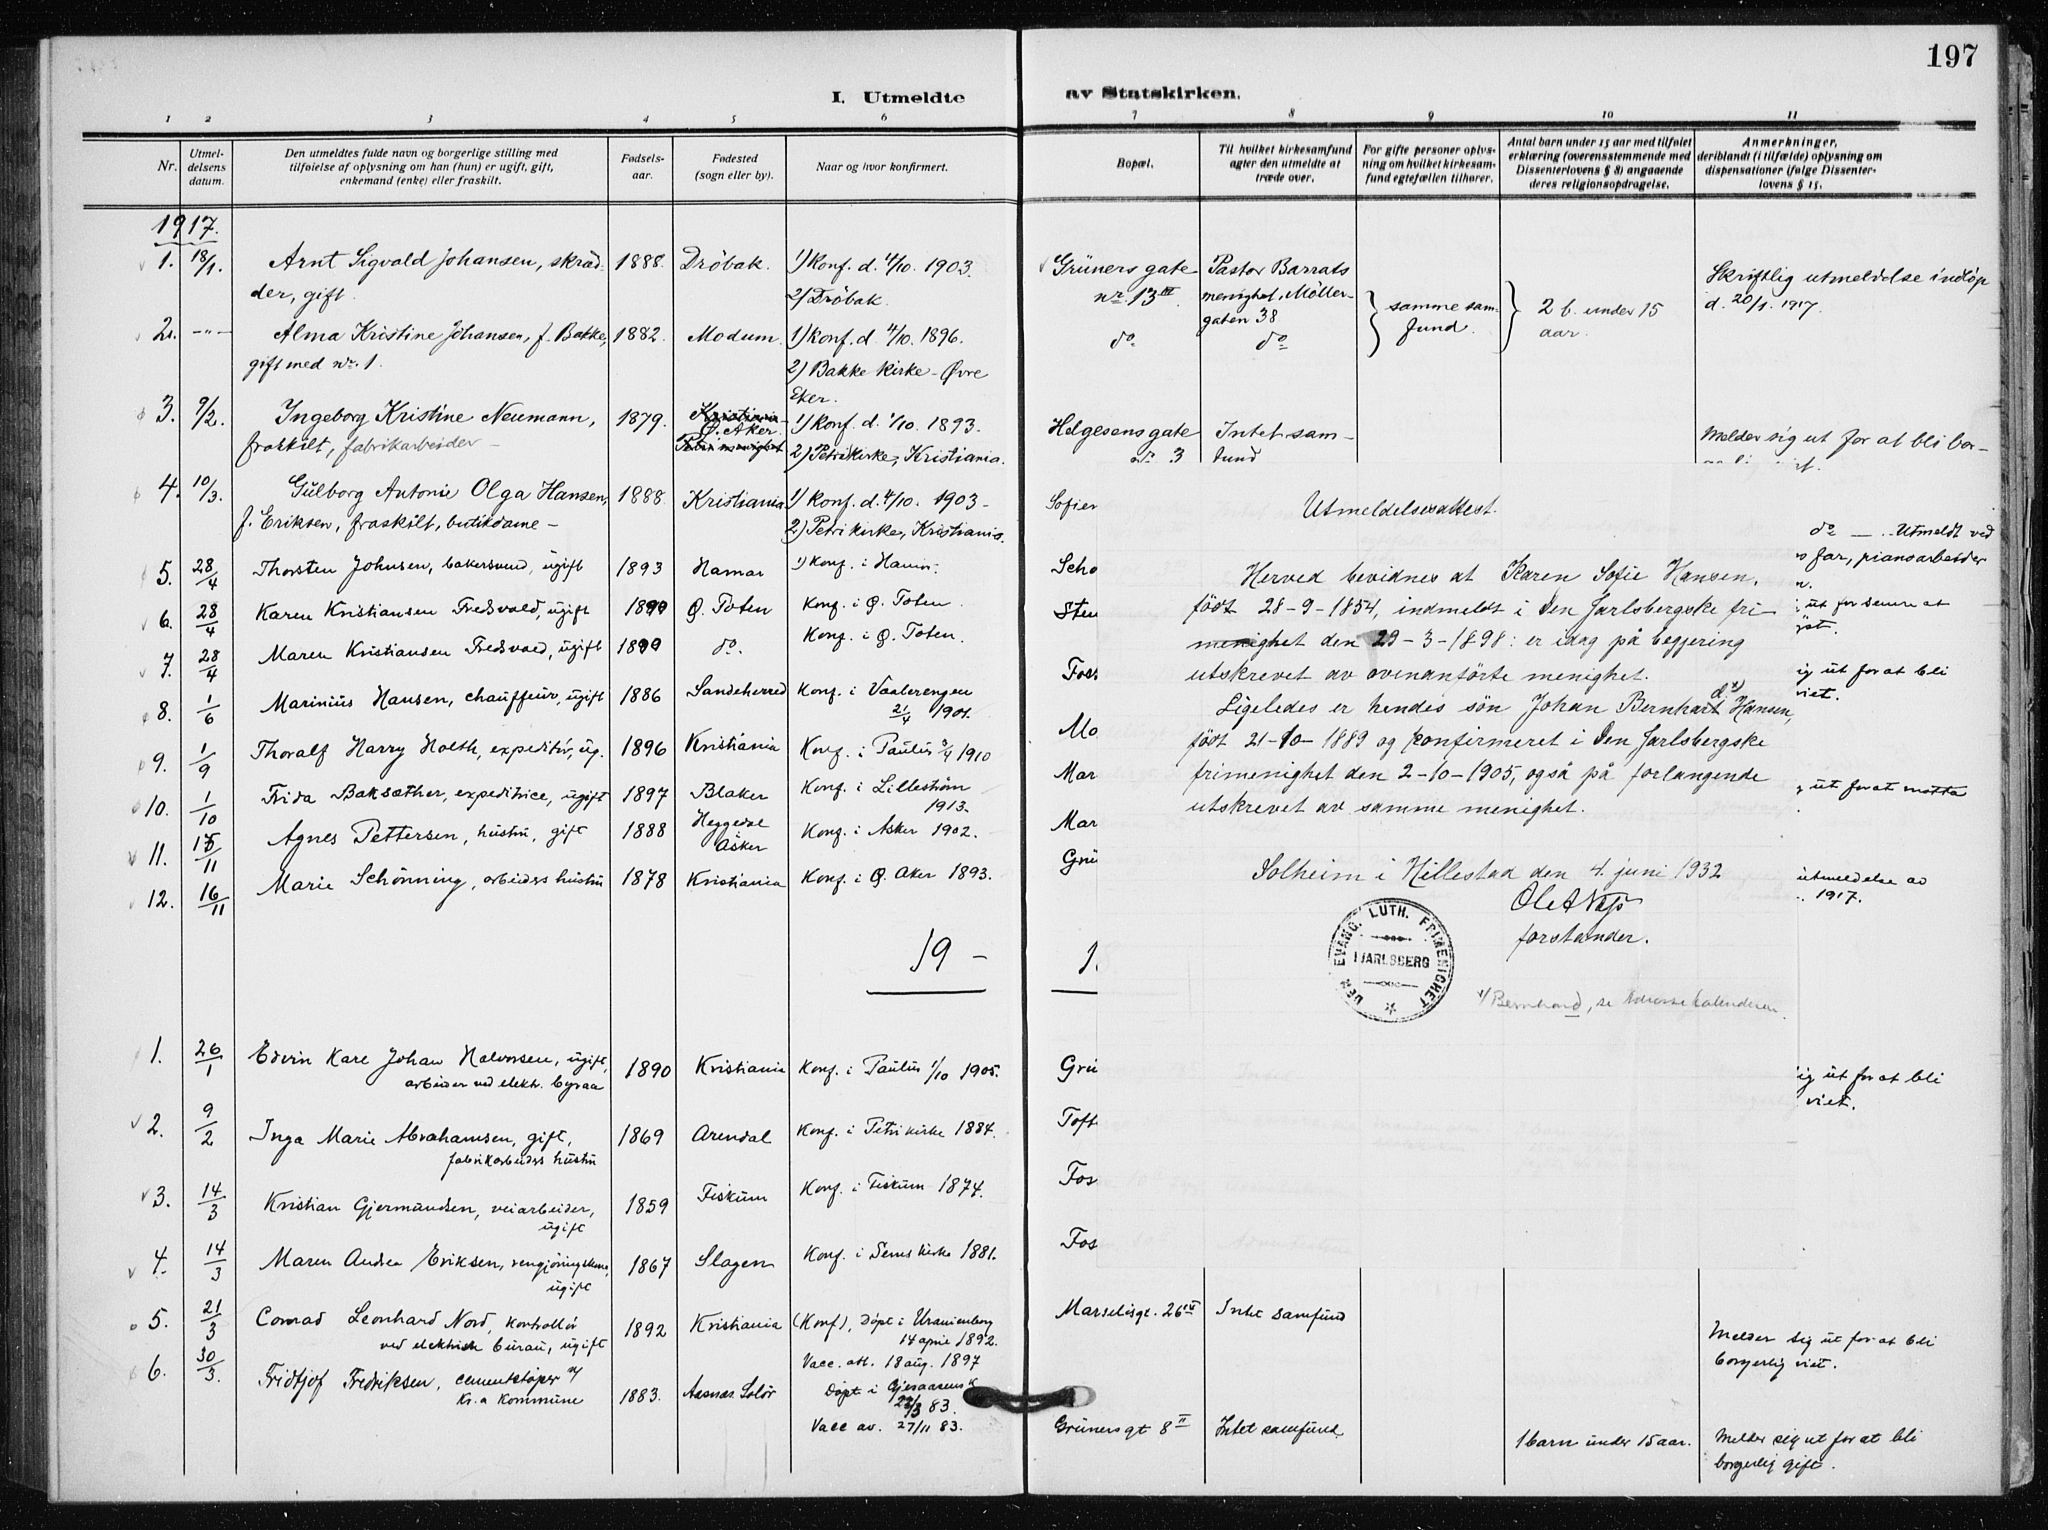 197
I. Utmeldte
av Statskirken.
1 2 3 4 5 6 7 8 9 10 11
Nr.
Utmel-
delsens
datum.
Den utmeldtes fulde navn og borgerlige stilling med
tilføielse af oplysning om han (hun) er ugift, gift,
enkemand (enke) eller fraskilt.
Fødsels-
aar.
Fødested
(sogn eller by).
Naar og hvor konfirmert.
Bopæl.
Til hvilket kirkesamfund
agter den utmeldte at
træde over.
For gifte personer oplys-
ning om hvilket kirkesam-
fund egtefællen tilhører.
Antal barn under 15 aar med tilføiet
erklæring (overensstemmende med
Dissenterlovens § 8) angaaende
deres religionsopdragelse.
Anmerkninger,
deriblandt (i tilfælde) oplysning om
dispensationer ifølge Dissenter-
lovens § 15.
1917.
1. 18/1. Arnt Sigvald Johansen, skræd- 1888. Dröbak. 1) Konf. d. 4/10. 1903.
der, gift. 2) Dröbak.
2. -"- Alma Kristine Johansen, f. Bakke, 1882. Modum. 1) Konf. d. 4/10. 1896.
gift med nr. 1. 2) Bakke kirke - Øvre
Eker.
3. 9/2. Ingeborg Kristine Neumann, 1879. Kristiania Ø. Aker. 1) Konf. d. 1/10. 1893.
fraskilt, fabrikarbeider - Petri menighet 2) Petrikirke, Kristiania.
4. 10/3. Gülborg Antonie Olga Hansen, 1888. Kristiania 1) Konf. d. 4/10. 1903 -
f. Eriksen, fraskilt, butikdame - 2) Petri kirke, Kristiania.
5. 28/4 Thorsten Johnsen, bakersvend, ugift 1893 Hamar 1) Konf. i Hamar.
6. 28/4 Karen Kristiansen Fredsvold, ugift 1899 Ø. Toten Konf. i Ø. Toten.
7. 28/4 Maren Kristiansen Fredsvold, ugift 1899 do. Konf. i Ø. Toten.
8. 1/6 Marinius Hansen, chauffeur, ugift 1886 Sandeherred Konf. i Vaalerengen
21/4 1901.
9. 1/9 Thoralf Harry Holth, expeditör, ug. 1896 Kristiania Konf. i Paulus 3/4 1910
10. 1/10 Frida Baksæther, expeditrice, ugift 1897 Blaker Konf. i Lilleström
1913.
11. 15/11 Agnes Pettersen, hustru, gift 1888 Heggedal Asker Konf. i Asker 1902.
12. 16/11 Marie Schönning, arbeiders hustru 1878 Kristiania Konf. i Ø. Aker 1893.
19 -
1. 26/1 Edvin Karl Johan Halvorsen, ugift, 1890 Kristiania Konf. i Paulus 1/10 1905.
arbeider ved elektr. byraa
2. 9/2 Inga Marie Abrahamsen, gift, 1869 Arendal Konf. i Petri kirke 1884.
fabrikarbeiders hustru
3. 14/3 Kristian Gjermundsen, veiarbeider, 1859 Fiskum Konf. i Fiskum 1874.
ugift
4. 14/3 Maren Andrea Eriksen, 1867 Slagen Konf. i Sems kirke 1881.
ugift
5. 21/3 Conrad Leonhard Nord, kontrollör 1892 Kristiania (Konf), Döpt i Uranienborg
ved elektrisk bureau, ugift 14 april 1892.
Vacc. att. 18 aug. 1897
6. 30/3. Fridtjof Fredriksen, cementstøper v/ 1883. Aasnes Solör Döpt i Gjesaasen
Kr.a Kommune 83.
Vacc av. 27/11 83.
Grüners gate Pastor Barrats Skriftlig utmeldelse indløp
nr. 13 III. menighet, Möller- samme sam- 2 b. under 15 d. 20/1. 1917.
gaten 38 fund. aar.
do do
Helgesens gate Intet sam- Melder sig ut for at bli bor-
nr. 3 fund
Sofien
Scho
Sten
Foss
Mo
Mar
Mar
Grü
1.
Grü
Toft
Fos
Fos
Utmeldelsesattest.
Herved bevidnes at Karen Sofie Hansen,
födt 28-9-1854, indmeldt i Den Jarlsbergske fri-
menighet den 29-3-1898: er idag på begjering
utskrevet av ovenanförte menighet.
Ligeledes er hendes sön Johan Bernhart d 1) Hansen,
födt 21-10-1889 og konfirmeret i Den Jarlsbergske
frimenighet den 2-10-1905, også på forlangende
utskrevet av samme menighet.
Solheim i Hillestad den 4. juni 1932
forstander.
DEN EVANG. LUTH. FRIMENIGHET
I JARLSBERG
1) Bernhard, se Adressekalenderen.
do — .. Utmeldt ved
s far, pianoarbeider
n.
ut for senere at
ig ut for at bli
viet.
ut for at motta
utmeldelse av
1917.
ig ut for at bli
viet.
Marselisgt. 26 IV Intet samfund Melder sig ut for at bli
borgerlig viet.
Grünersgt 8 II Intet samfund. 1 barn under 15 aar. Melder sig ut for at bli
borgerlig gift.